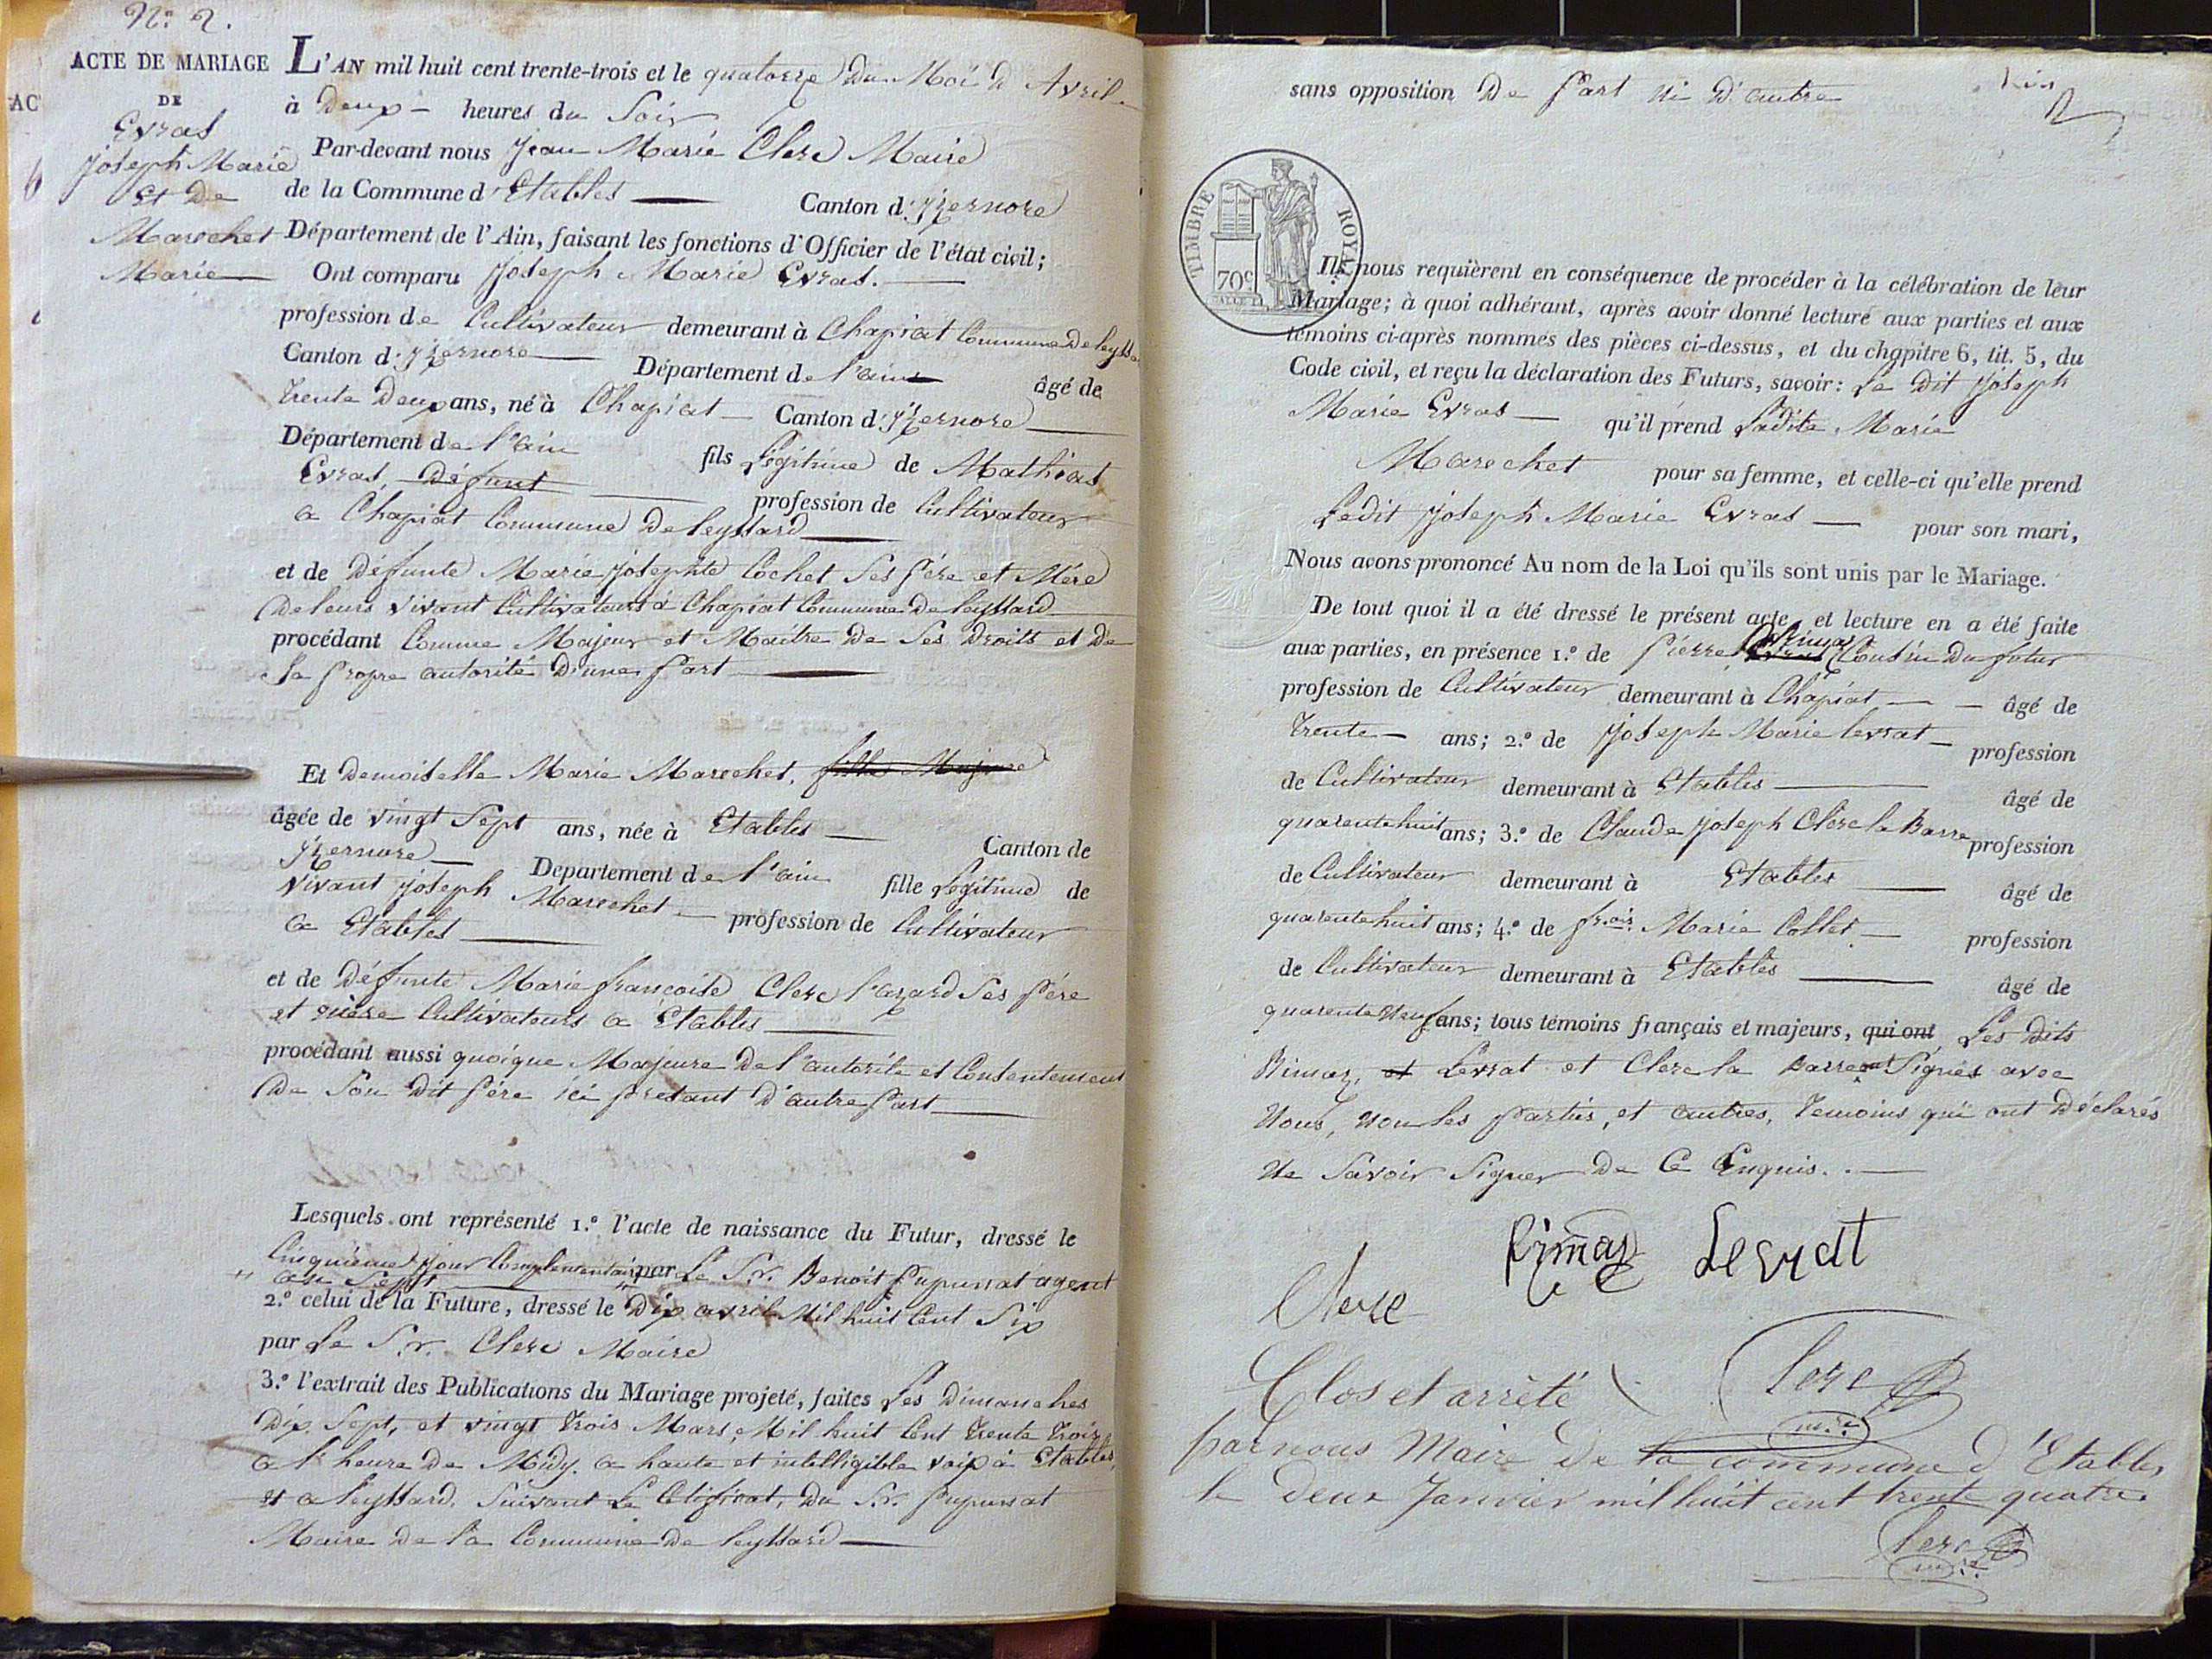 N.o 2.
ACTE DE MARIAGE
DE
Evras
Joseph Marie
et De
Marechet
Marie
AC
L'AN mil huit cent trente-trois et le quatorze du Moi d'Avril
à Deux heures du Soir
Par-devant nous Jean Marie Clerc Maire
de la Commune d'Etables Canton d'Yzernore
Département de l'Ain, faisant les fonctions d'Officier de l'état civil;
Ont comparu Joseph Marie Evras.
profession de Cultivateur demeurant à Chapiat Commune De leyssa
Canton d'Yzernore Département de l'ain âgé de
trente Deux ans, né à Chapiat Canton d'Yzernore
Département de l'ain fils Légitime de Mathias
Evras, Défunt profession de Cultivateur
a Chapiat Commune De leyssard
et de Défunte Marie Josephte Cochet Ses père et Mère
De leurs vivant Cultivateurs à Chapiat Commune De leyssard
procédant Comme Majeur et Maitre De Ses Droits et De
Sa propre autorité D'une part
Et Demoiselle Marie Marechet, fille Majeure
âgée de vingt Sept ans, née à Etables Canton de
Yzernore Departement de l'ain fille Légitime de
vivant Joseph Marechet profession de Cultivateur
a Etables
et de Défunte Marie françoise Clerc l'azard Ses père
et mère Cultivateurs a Etables
procédant aussi quoique Majeure De l'autorité et Consentement
De Son Dit père ici présant D'autre part
Lesquels ont représenté 1.o l'acte de naissance du Futur, dressé le
Cinquième jour Complementaire par Le S.r. Benoit Pupunat agent
an Sept
2.o celui de la Future, dressé le Dix avril Mil huit Cent Six
par Le S.r. Clerc Maire
3.o l'extrait des Publications du Mariage projeté, faites Les Dimanches
Dix Sept, et vingt trois Mars, Mil huit Cent trente trois
a l'heure De Midy. a haute et intelligible voix à Etables,
et a leyssard. Suivant Le Cetificat, Du S.r. Pupunat
Maire De la Commune De leyssard
sans opposition De part ni D'autre
TIMBRE ROYAL
70c
Ils nous requièrent en conséquence de procéder à la célébration de leur
Mariage; à quoi adhérant, après avoir donné lecture aux parties et aux
témoins ci-après nommés des pièces ci-dessus, et du chapitre 6, tit. 5, du
Code civil, et reçu la déclaration des Futurs, savoir: Le Dit Joseph
Marie Evras qu'il prend Ladite Marie
Marechet pour sa femme, et celle-ci qu'elle prend
Ledit Joseph Marie Evras pour son mari,
Nous avons prononcé Au nom de la Loi qu'ils sont unis par le Mariage.
De tout quoi il a été dressé le présent acte, et lecture en a été faite
aux parties, en présence 1.o de Pierre Cousin Du futur
profession de Cultivateur demeurant à Chapiat âgé de
trente ans; 2.o de Joseph Marie levrat profession
de Cultivateur demeurant à Etables âgé de
quarente huit ans; 3.o de Claude Joseph Clerc la Barre profession
de Cultivateur demeurant à Etables âgé de
quarente huit ans; 4.o de f.ois Marie Collet profession
de Cultivateur demeurant à Etables âgé de
quarente neuf ans; tous témoins français et majeurs, qui ont Les Dits
Rimaz, et Levrat et Clerc la Barre ont Signés avec
Nous, non les parties, et autres, temoins qui ont Déclarés
Ne Savoir Signer De Ce Enquis.
Rimaz Levrat
Clerc
Clos et arrêté Clerc
m.re
par nous Maire de la commune d'Etables
le deux Janvier mil huit cent trente quatre
Clerc
m.re